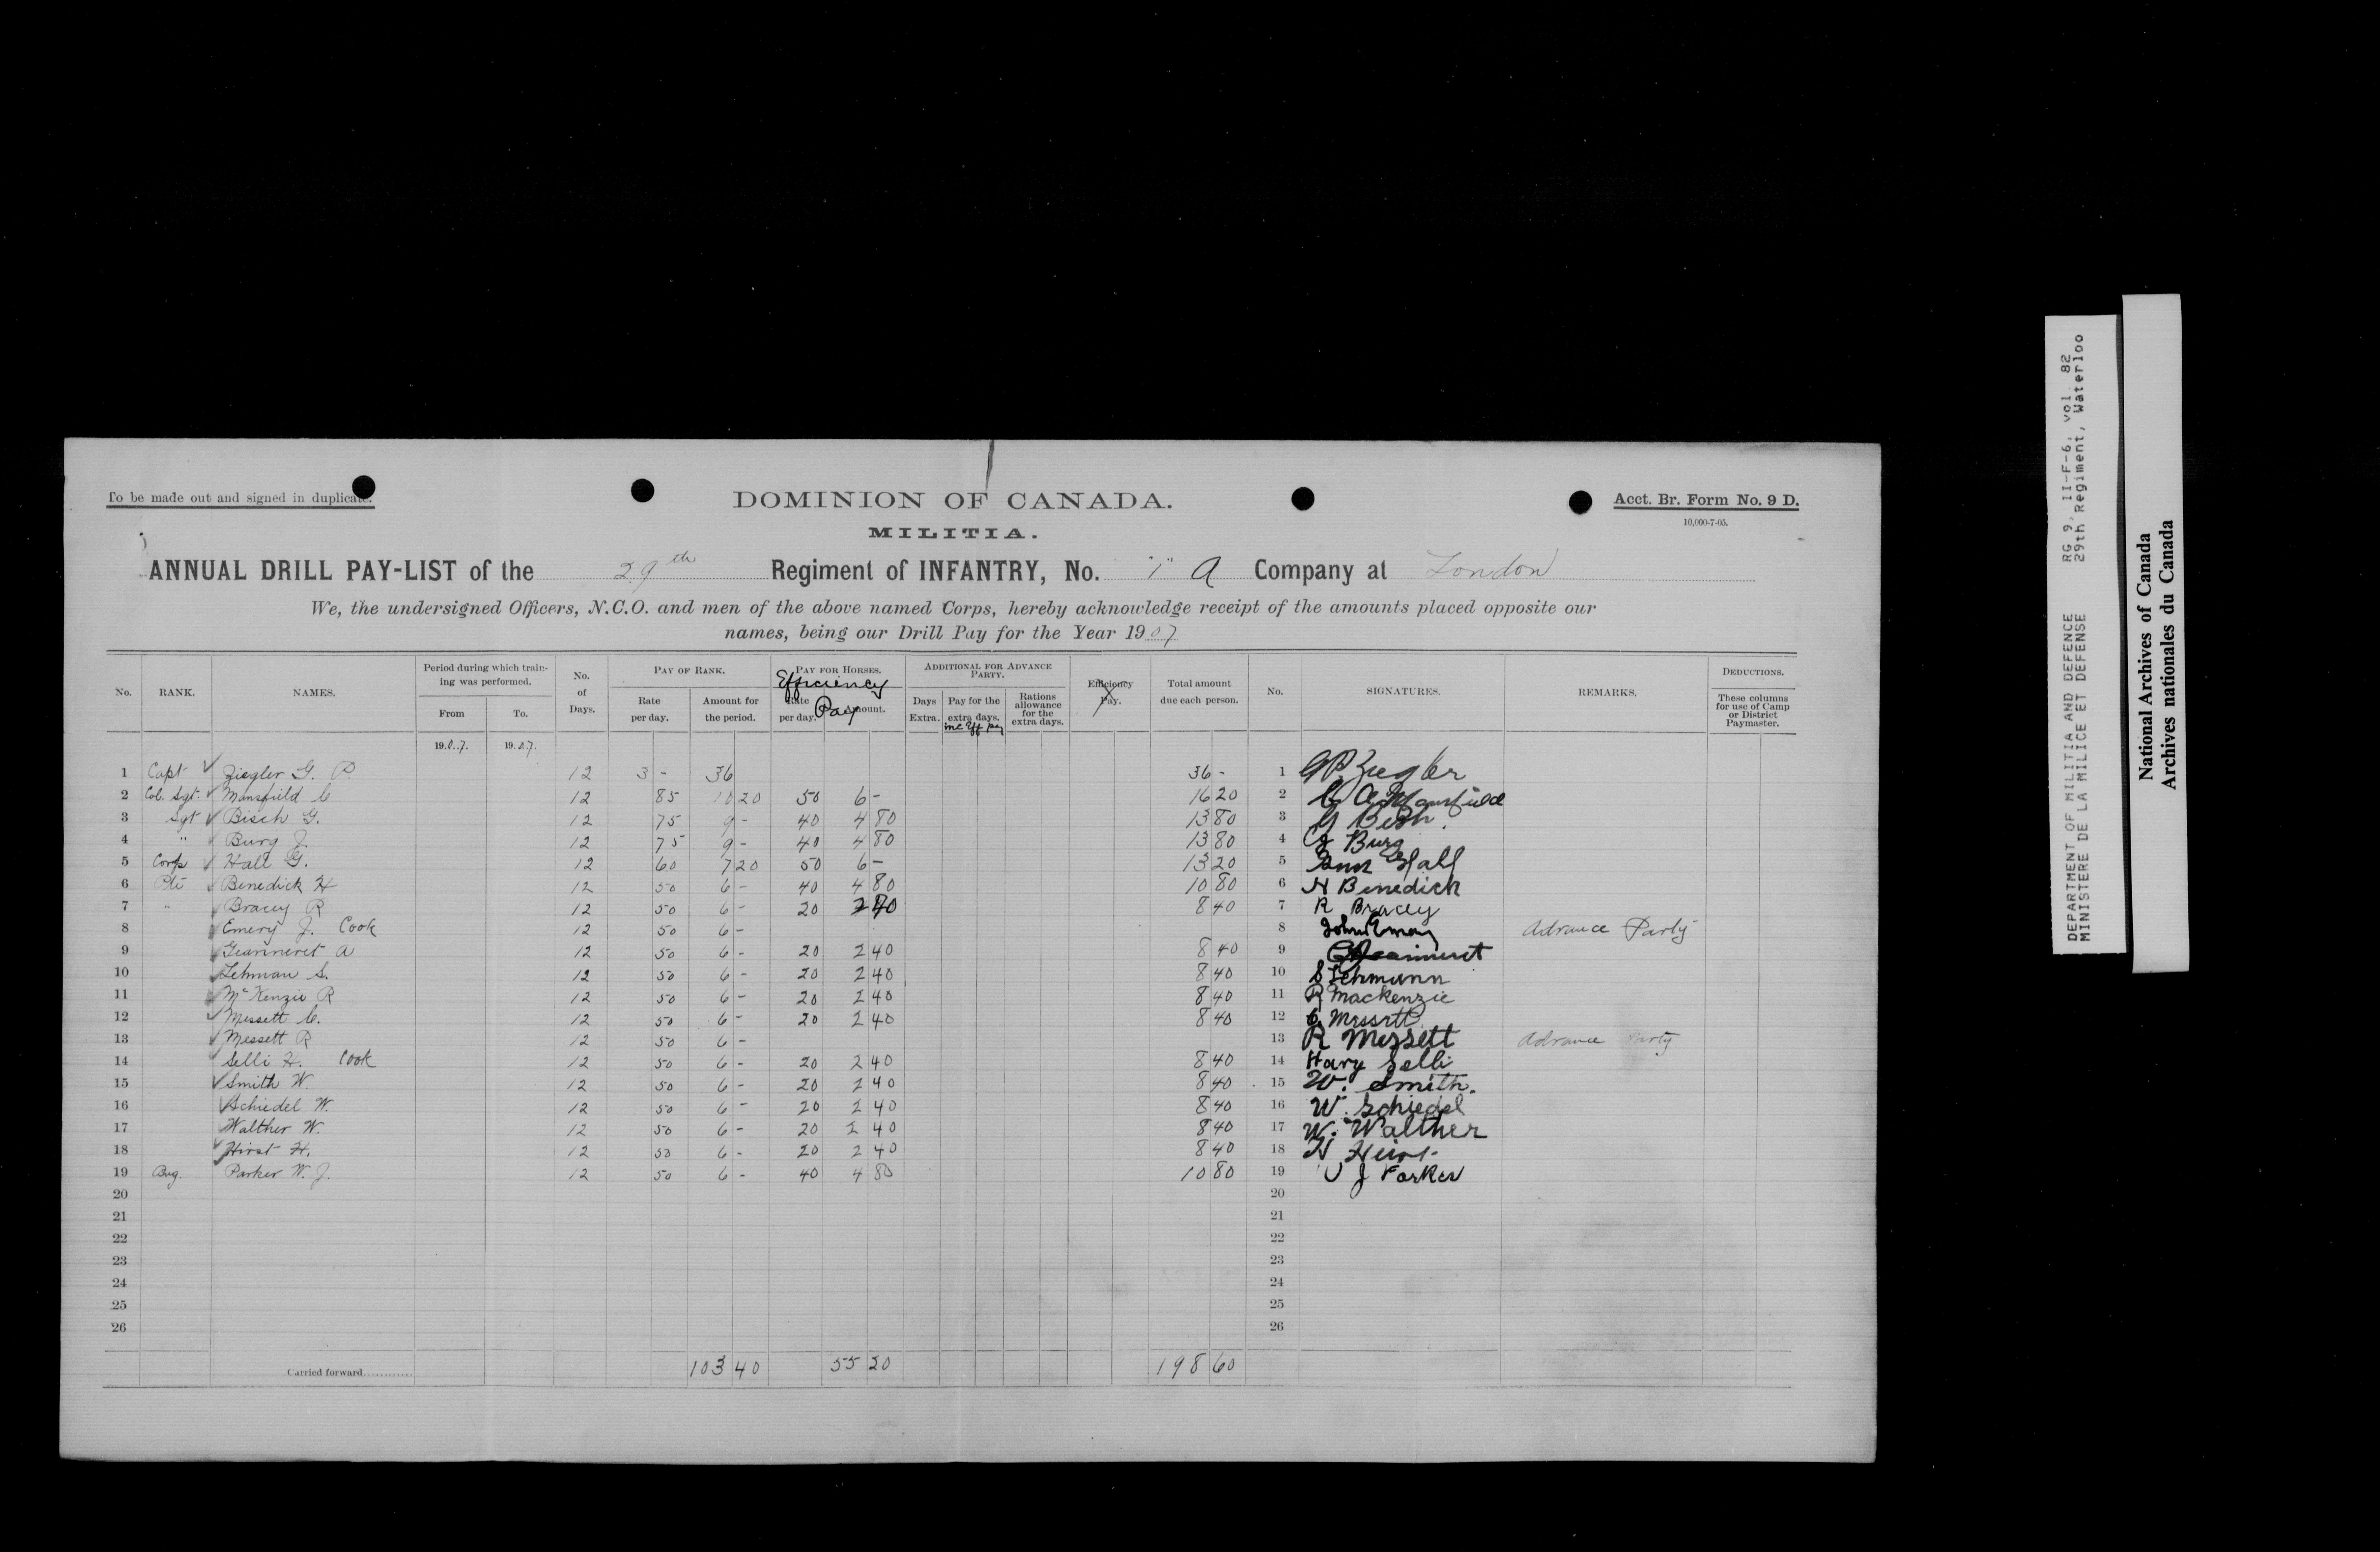 To be made out and signed in duplicate.
DOMINION OF CANADA.
Acct. Br. Form No. 9 D.
10,000-7-05.
MILITIA.
ANNUAL DRILL PAY-LIST of the 29th Regiment of INFANTRY, No. A Company at London
We, the undersigned Officers, N.C.O. and men of the above named Corps, hereby acknowledge receipt of the amounts placed opposite our
names, being our Drill Pay for the Year 1907
No. RANK. NAMES. Period during which training was performed. From To. No. of Days. PAY OF RANK. Rate per day. Amount for the period. PAY FOR HORSES. Efficiency Pay Rate per day. Amount. ADDITIONAL FOR ADVANCE PARTY. Days Extra. Pay for the extra days. inc eff pay Rations allowance for the extra days. Efficiency Pay. Total amount due each person. No. SIGNATURES. REMARKS. DEDUCTIONS. These columns for use of Camp or District Paymaster.
1907. 1907.
1 Capt ✓ Ziegler G. P. 12 3 - 36 36 - 1 G P Ziegler
2 Col. Sgt. ✓ Mansfield C 12 85 10 20 50 6 - 16 20 2 C A Mansfield
3 Sgt ✓ Bisch G. 12 75 9 - 40 4 80 13 80 3 G Bish
4 " ✓ Burg J. 12 75 9 - 40 4 80 13 80 4 J Burg
5 Corp ✓ Hall G. 12 60 7 20 50 6 - 13 20 5 Hall
6 Pte ✓ Benedick H 12 50 6 - 40 4 80 10 80 6 H Benedick
7 " ✓ Bracey R 12 50 6 - 20 2 40 8 40 7 R Bracey
8 ✓ Emery J. Cook 12 50 6 - 8 John Emery Advance Party
9 ✓ Jeanneret A 12 50 6 - 20 2 40 8 40 9 Jeanneret
10 ✓ Lehman S. 12 50 6 - 20 2 40 8 40 10 S Lehmann
11 ✓ McKenzie R 12 50 6 - 20 2 40 8 40 11 R Mackenzie
12 ✓ Messett C. 12 50 6 - 20 2 40 8 40 12 C. Messett
13 ✓ Messett R 12 50 6 - 13 R Messett Advance Party
14 Selli H. Cook 12 50 6 - 20 2 40 8 40 14 Harry Selli
15 ✓ Smith W. 12 50 6 - 20 2 40 8 40 15 W. Smith.
16 ✓ Schiedel W. 12 50 6 - 20 2 40 8 40 16 W. Schiedel
17 Walther W. 12 50 6 - 20 2 40 8 40 17 W. Walther
18 ✓ Hirst H. 12 50 6 - 20 2 40 8 40 18 H Hirst
19 Bug. Parker W. J. 12 50 6 - 40 4 80 10 80 19 W J Parker
20 20
21 21
22 22
23 23
24 24
25 25
26 26
Carried forward............ 103 40 55 20 198 60
DEPARTMENT OF MILITIA AND DEFENCE RG 9, II-F-6, vol. 82
MINISTERE DE LA MILICE ET DEFENSE 29th Regiment, Waterloo
National Archives of Canada
Archives nationales du Canada